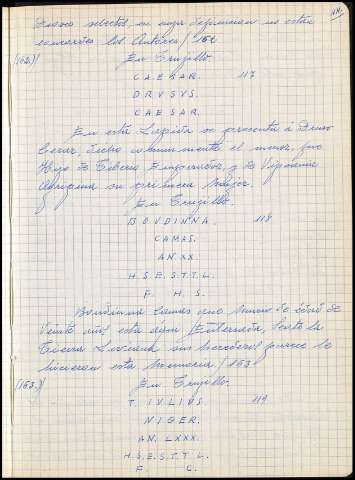 114.
Drusos selectos, en cuya definicion no estan
concordes los Autores / 162
(162)/ En Trugillo
CAESAR. 117
DRVSVS.
CAESAR.
En esta Lapida se presenta á Druso
Cesar, dicho comunmente el menor, fue
Hijo de Tiberio Emperador, y de Vipsania
Agripina su primera Mujer.
En Trugillo.
BOVDINNA. 118
CAMAS.
AN.XX.
H.S.E.S.T.T.L.
F. H. S.
Boudinna Camas que murio de edad de
Veinte años esta aqui Enterrada, seale la
Tierra Liviana sus herederos parece le
hicieron esta memoria / 163
(163)/ En Trugillo.
T. IVLIVS. 119
NIGER.
AN. LXXX.
H.S.E.S.T.T.L.
F. C.